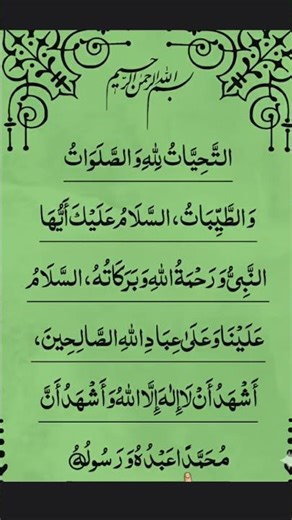 بسم الله الرحمن الرحيم
التَّحِيَّاتُ لِلّٰهِ وَالصَّلَوَاتُ
وَالطَّيِّبَاتُ، السَّلَامُ عَلَيْكَ أَيُّهَا
النَّبِيُّ وَرَحْمَةُ اللهِ وَبَرَكَاتُهُ، السَّلَامُ
عَلَيْنَا وَعَلَىٰ عِبَادِ اللهِ الصَّالِحِينَ،
أَشْهَدُ أَنْ لَا إِلٰهَ إِلَّا اللهُ وَأَشْهَدُ أَنَّ
مُحَمَّدًا عَبْدُهُ وَرَسُولُهُ